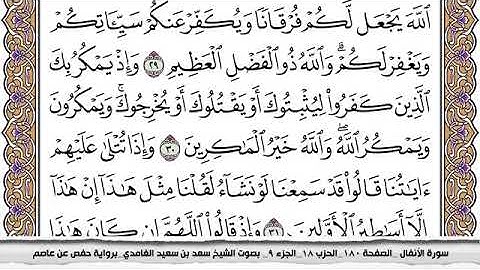 اللَّهَ يَجْعَل لَّكُمْ فُرْقَانًا وَيُكَفِّرْ عَنكُمْ سَيِّئَاتِكُمْ
وَيَغْفِرْ لَكُمْ ۗ وَاللَّهُ ذُو الْفَضْلِ الْعَظِيمِ ٢٩ وَإِذْ يَمْكُرُ بِكَ
الَّذِينَ كَفَرُوا لِيُثْبِتُوكَ أَوْ يَقْتُلُوكَ أَوْ يُخْرِجُوكَ ۚ وَيَمْكُرُونَ
وَيَمْكُرُ اللَّهُ ۖ وَاللَّهُ خَيْرُ الْمَاكِرِينَ ٣٠ وَإِذَا تُتْلَىٰ عَلَيْهِمْ
ءَايَاتُنَا قَالُوا قَدْ سَمِعْنَا لَوْ نَشَاءُ لَقُلْنَا مِثْلَ هَٰذَا إِنْ هَٰذَا
إِلَّا أَسَاطِيرُ الْأَوَّلِينَ ٣١ وَإِذْ قَالُوا اللَّهُمَّ إِن كَانَ هَٰذَا
سورة الأنفال _ الصفحة ١٨٠ _ الحزب ١٨ _ الجزء ٩ _ بصوت الشيخ سعد بن سعيد الغامدي _ برواية حفص عن عاصم